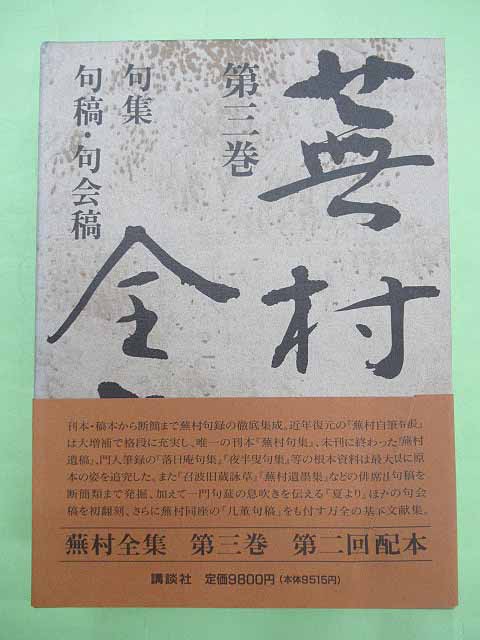 蕪村
全
第三巻
句集
句稿・句会稿
刊本・稿本から断簡まで蕪村句録の徹底集成。近年復元の『蕪村自筆句帳』
は大増補で格段に充実し、唯一の刊本『蕪村句集』、未刊に終わった『蕪村
遺稿』、門人筆録の『落日庵句集』『夜半叟句集』等の根本資料は最大限に原
本の姿を追究した。また『召波旧蔵詠草』『蕪村遺墨集』などの俳席出句稿を
断簡類まで発掘、加えて一門句莚の息吹きを伝える『夏より』ほかの句会
稿を初翻刻、さらに蕪村同座の『几董句稿』をも付す万全の基本文献集。
蕪村全集 第三巻 第二回配本
講談社 定価9800円(本体9515円)